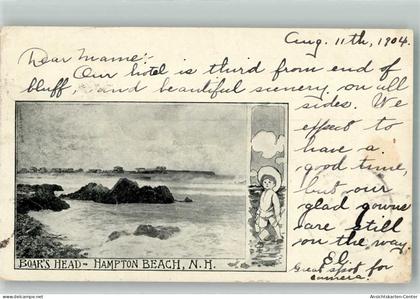 Aug. 11th, 1904.
Dear Mame:-
Our hotel is third from end of
bluff, and beautiful scenery on all
sides. We
expect to
have a
good time,
but our
glad gowns
are still
on the way.
Eli
Great spot for
camera.
BOAR'S HEAD - HAMPTON BEACH, N.H.
www.Ansichtskarten-Center.de